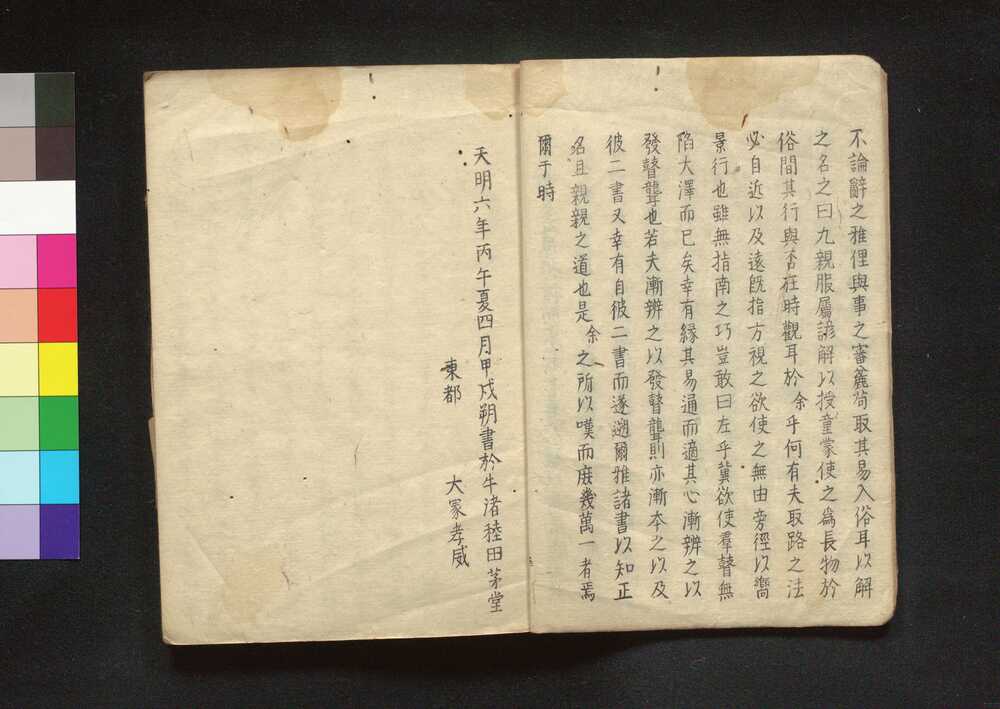 不論辭之雅俚與事之審麁苟取其易入俗耳以解
之名之曰九親服屬諺解以授童蒙使之爲長物於
俗間其行與否在時觀耳於余乎何有夫取路之法
必自近以及遠旣指方視之欲使之無由旁徑以嚮
景行也雖無指南之巧豈敢曰左乎冀欲使羣瞽無
陷大澤而已矣幸有緣其易通而適其心漸辨之以
發瞽聾也若夫漸辨之以發瞽聾則亦漸本之以及
彼二書又幸有自彼二書而遂遡爾雅諸書以知正
名且親親之道也是余之所以嘆而庶幾萬一者焉
爾于時
天明六年丙午夏四月甲戌朔書於牛渚稑田茅堂
東都 大冢孝威